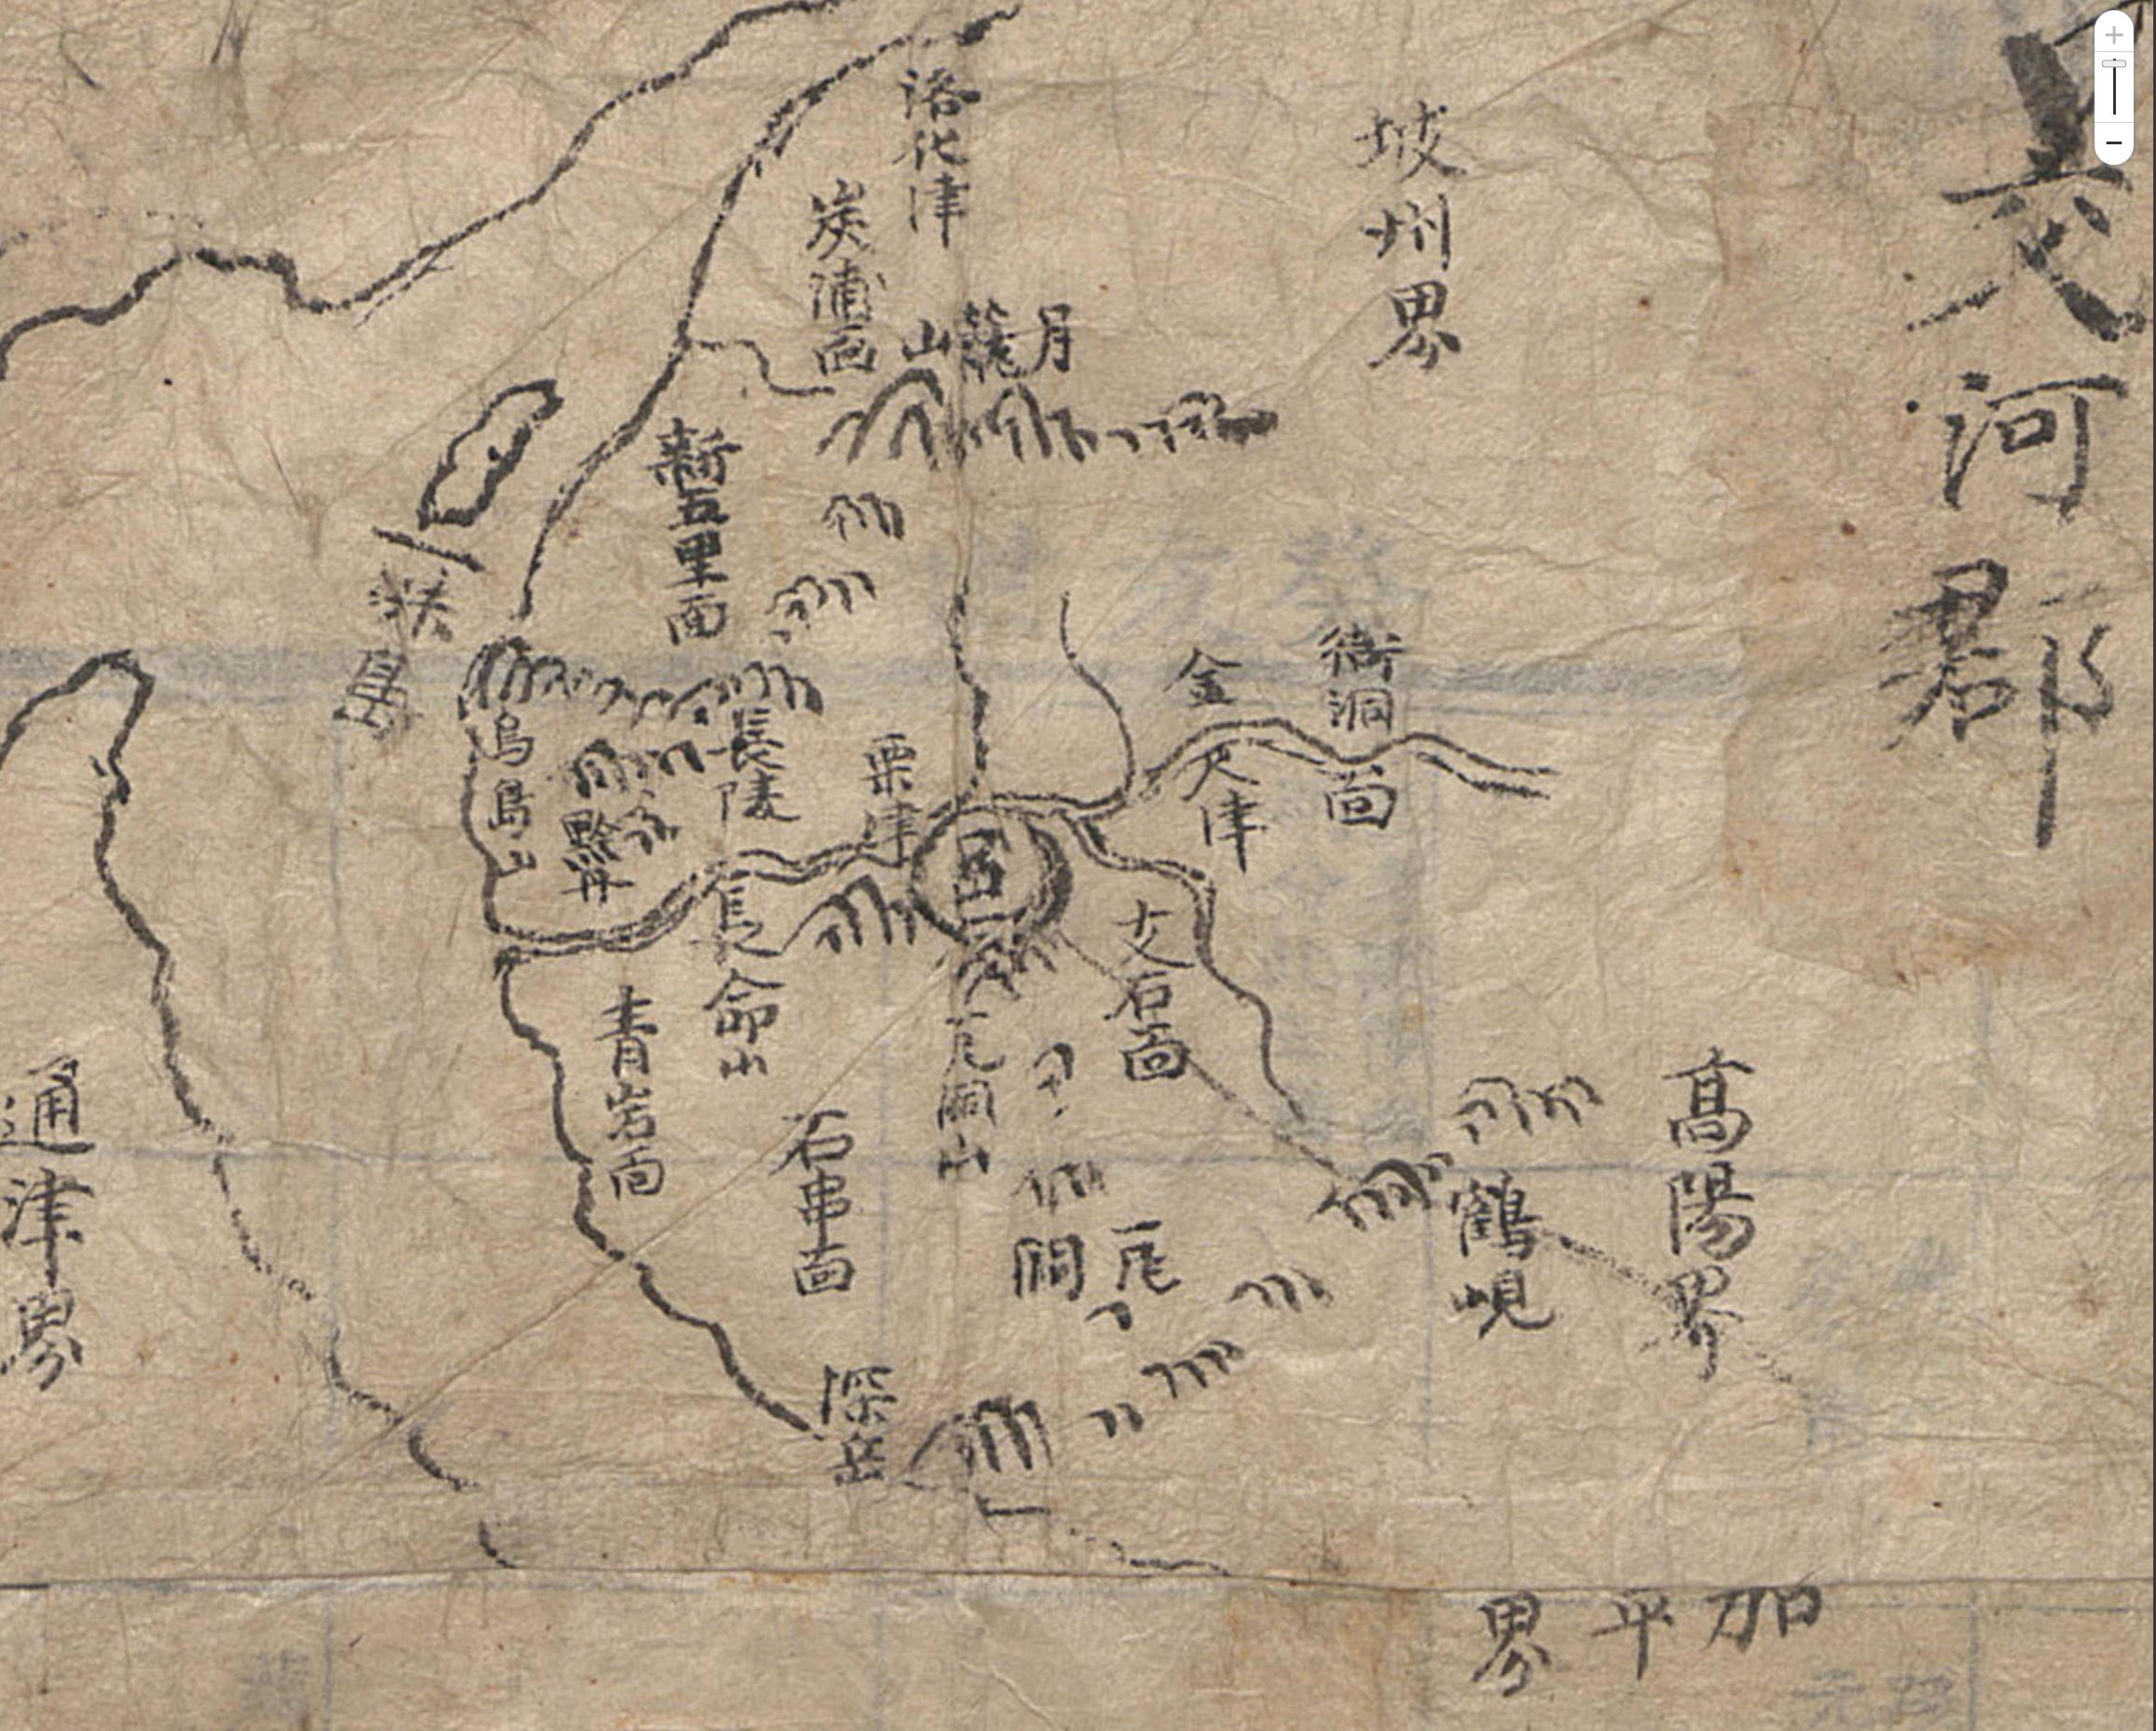 交河郡
坡州界
洛化津
炭浦面
月籠山
新五里面
衙洞面
金尺津
長陵
栗津
烏島山
黔丹
邑
長命山
青岩面
石串面
瓦洞山
瓦洞
丈石面
鶴峴
高陽界
深岳
通津界
加平界